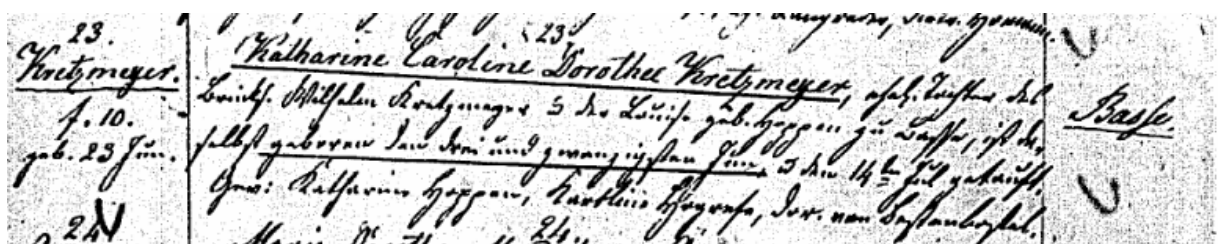 23.
Kretzmeyer.
f. 10.
geb. 23 Jun.
23
Katharine Caroline Dorothee Kretzmeyer, ehel. Tochter des
Brinks. Wilhelm Kretzmeyer & der Louise geb. Hoppen zu Basse, ist da-
selbst geboren den drei und zwanzigsten Jun. & den 14ten Jul getauft.
Gev: Katharine Hoppen, Dor. von
Basse.
24
24